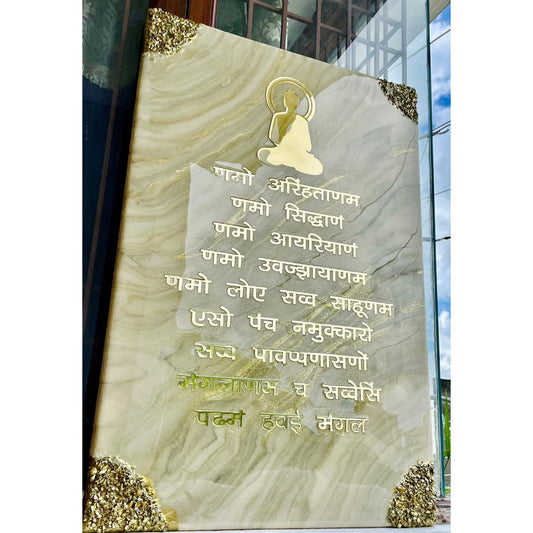 णमो अरिंहताणम
णमो सिद्धाणं
णमो आयरियाणं
णमो उवज्झायाणम
णमो लोए सव्व साहूणम
एसो पंच नमुक्कारो
सव्व पावप्पणासणो
मंगलाणम च सव्वेसिं
पढमं हवई मंगलं